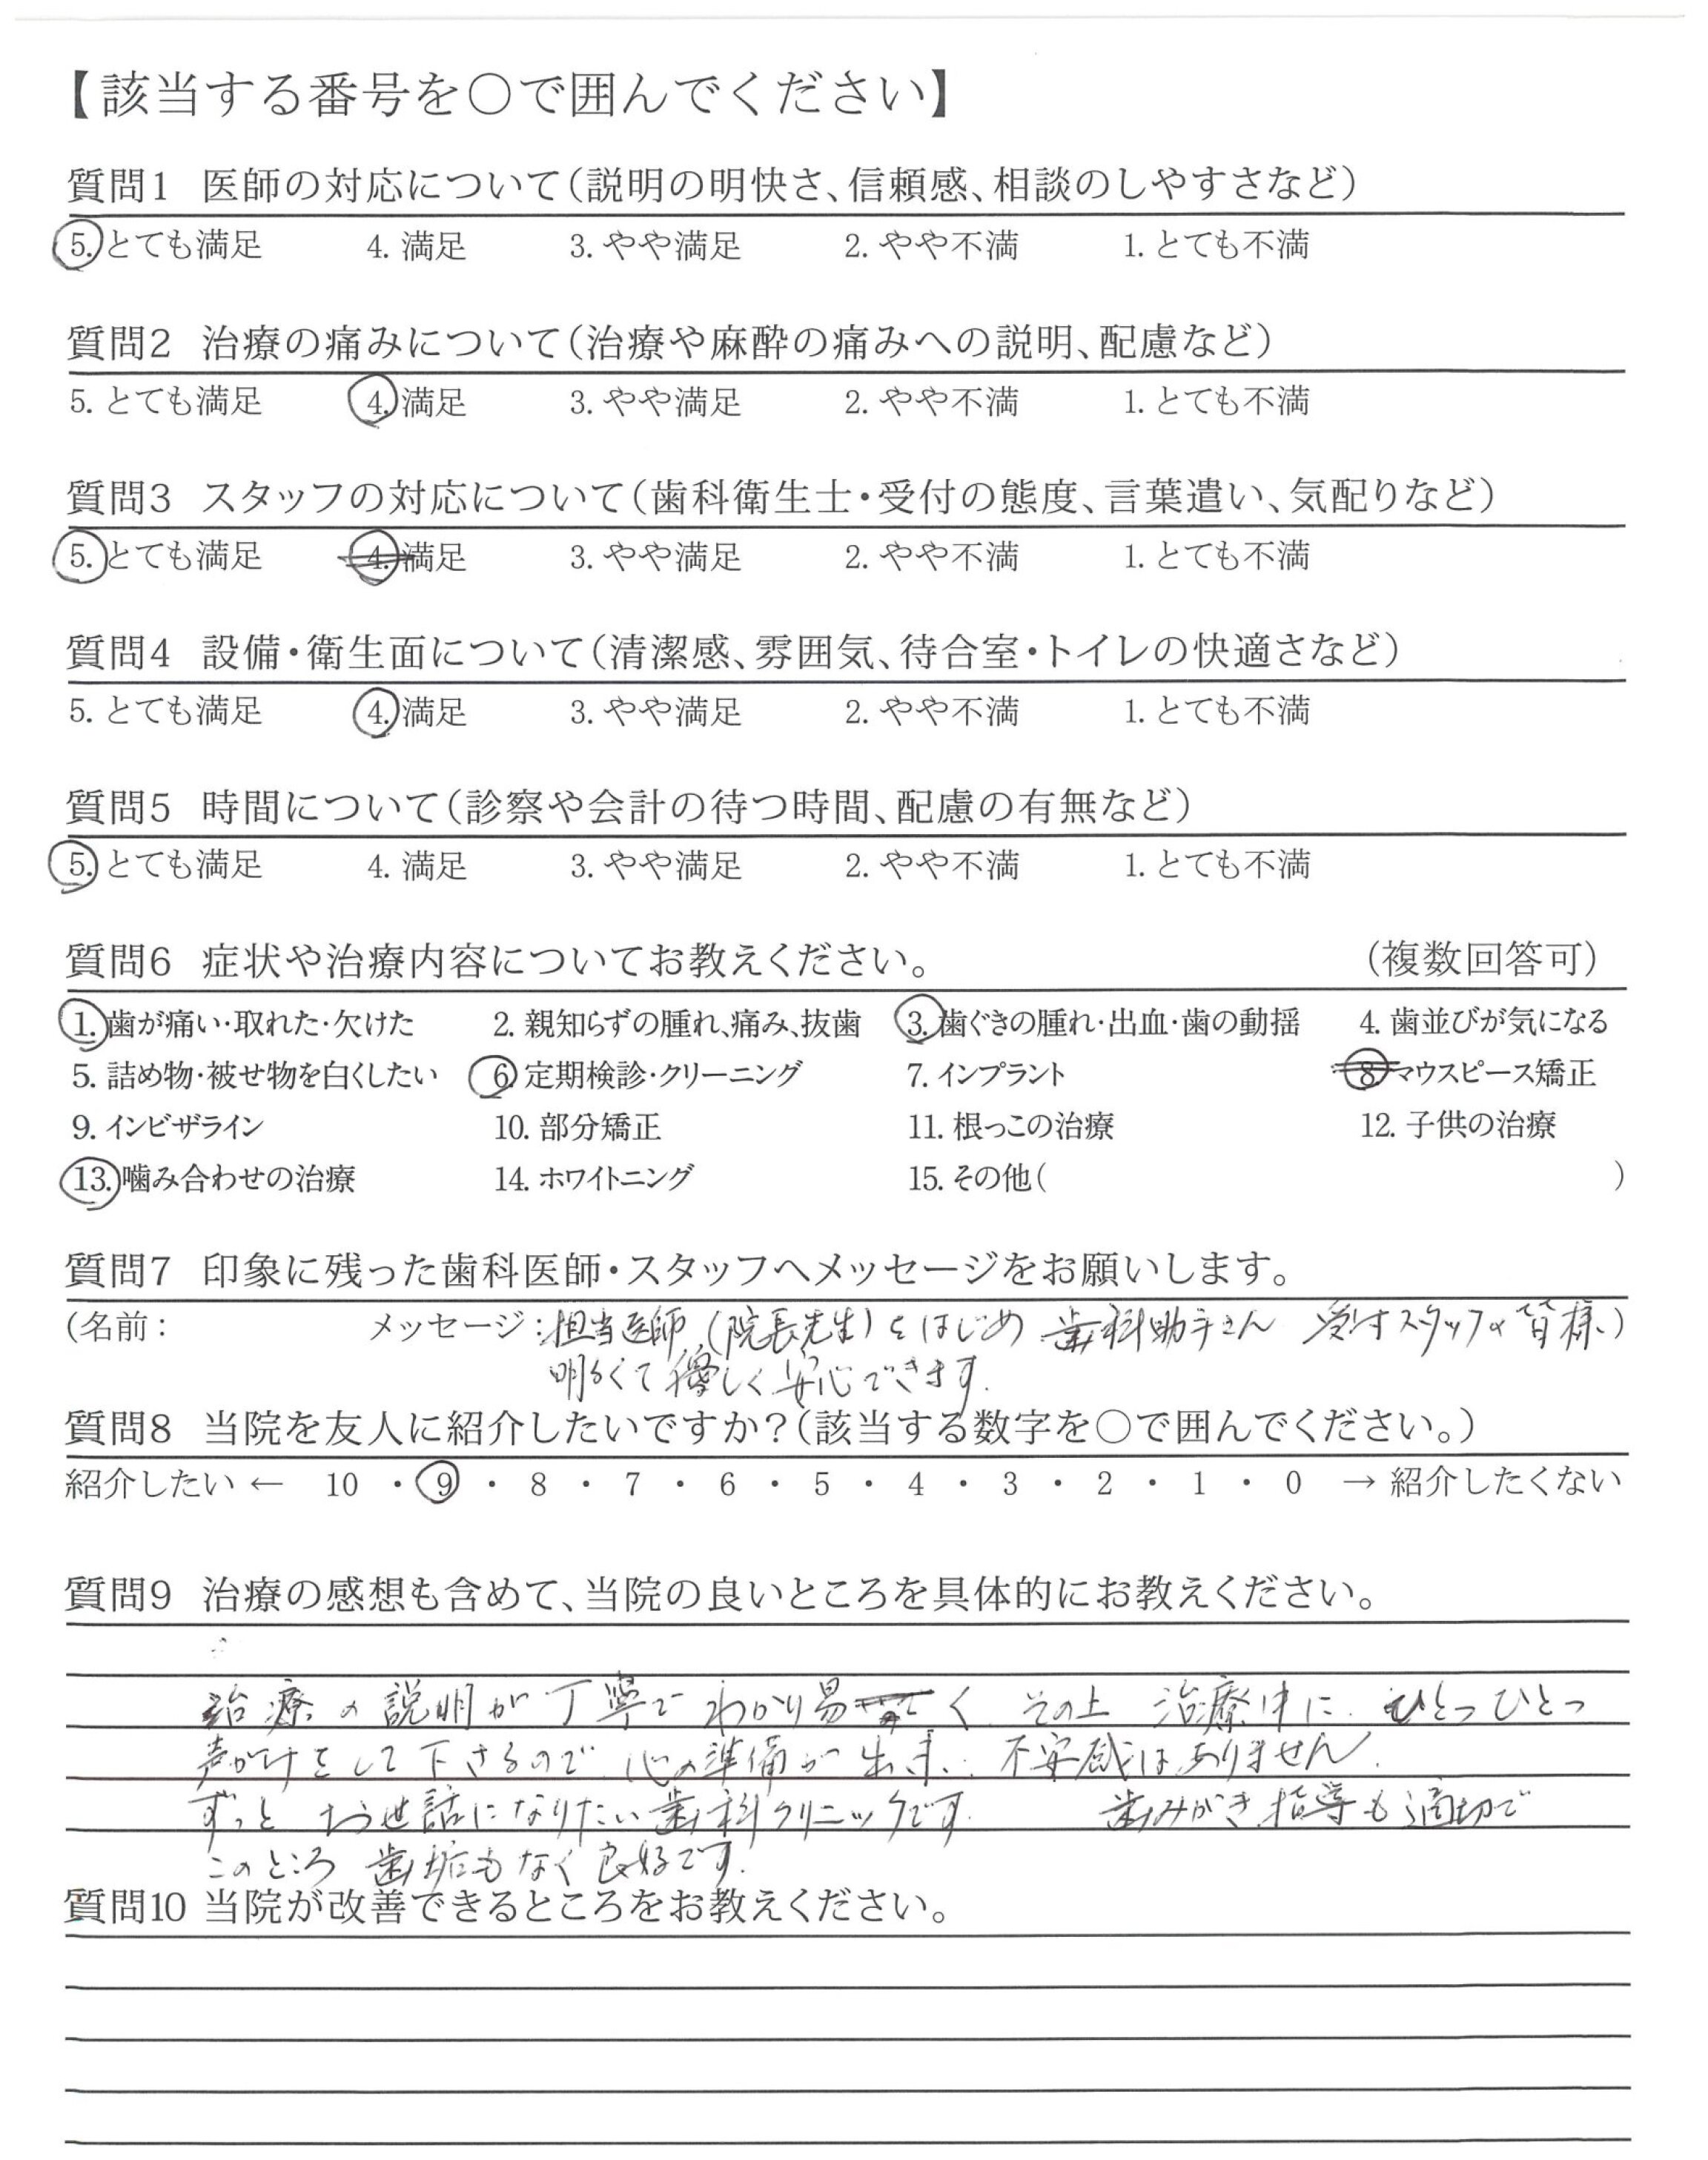 【該当する番号を○で囲んでください】
質問1 医師の対応について(説明の明快さ、信頼感、相談のしやすさなど)
5. とても満足 4. 満足 3. やや満足 2. やや不満 1. とても不満
質問2 治療の痛みについて(治療や麻酔の痛みへの説明、配慮など)
5. とても満足 4. 満足 3. やや満足 2. やや不満 1. とても不満
質問3 スタッフの対応について(歯科衛生士・受付の態度、言葉遣い、気配りなど)
5. とても満足 4. 満足 3. やや満足 2. やや不満 1. とても不満
質問4 設備・衛生面について(清潔感、雰囲気、待合室・トイレの快適さなど)
5. とても満足 4. 満足 3. やや満足 2. やや不満 1. とても不満
質問5 時間について(診察や会計の待つ時間、配慮の有無など)
5. とても満足 4. 満足 3. やや満足 2. やや不満 1. とても不満
質問6 症状や治療内容についてお教えください。 (複数回答可)
1. 歯が痛い・取れた・欠けた 2. 親知らずの腫れ、痛み、抜歯 3. 歯ぐきの腫れ・出血・歯の動揺 4. 歯並びが気になる
5. 詰め物・被せ物を白くしたい 6. 定期検診・クリーニング 7. インプラント 8. マウスピース矯正
9. インビザライン 10. 部分矯正 11. 根っこの治療 12. 子供の治療
13. 噛み合わせの治療 14. ホワイトニング 15. その他( )
質問7 印象に残った歯科医師・スタッフへメッセージをお願いします。
(名前: メッセージ:担当医師(院長先生)をはじめ 歯科助手さん 受付スタッフの皆様、)
明るくて優しく安心できます。
質問8 当院を友人に紹介したいですか?(該当する数字を○で囲んでください。)
紹介したい ← 10 ・ 9 ・ 8 ・ 7 ・ 6 ・ 5 ・ 4 ・ 3 ・ 2 ・ 1 ・ 0 → 紹介したくない
質問9 治療の感想も含めて、当院の良いところを具体的にお教えください。
治療の説明が丁寧で わかり易く その上 治療中に ひとつひとつ
声がけをして下さるので 心の準備が出来、不安感はありません。
ずっと お世話になりたい歯科クリニックです。 歯みがき指導も適切で
このところ 歯垢もなく良好です。
質問10 当院が改善できるところをお教えください。